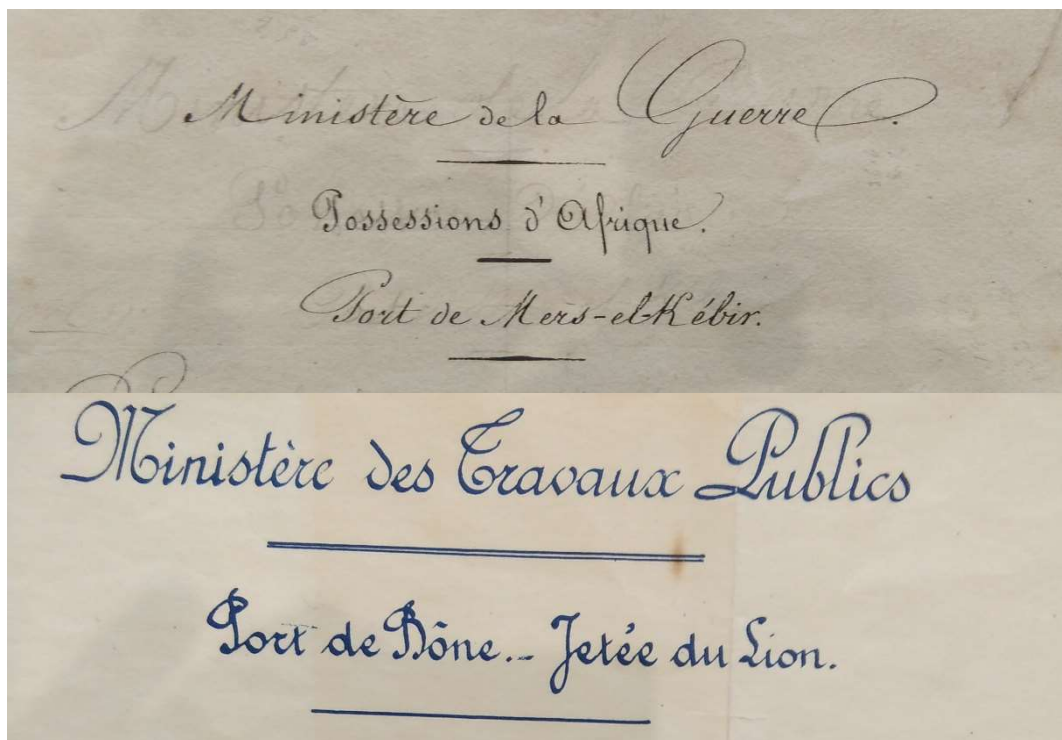 Ministère de la Guerre.
Possessions d'Afrique.
Port de Mers-el-Kébir.
Ministère des Travaux Publics
Port de Bône._ Jetée du Lion.